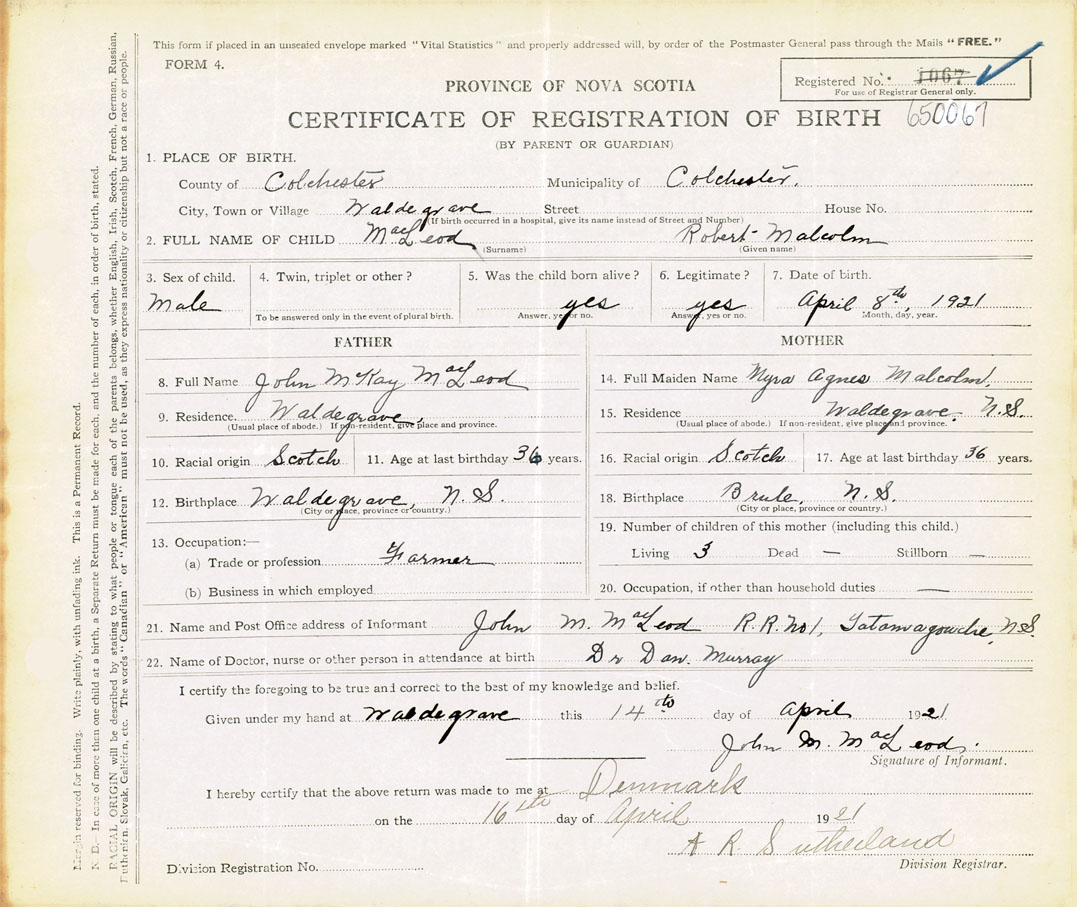 This form if placed in an unsealed envelope marked "Vital Statistics" and properly addressed will, by order of the Postmaster General pass through the Mails "FREE."
FORM 4.
Registered No. 1067
For use of Registrar General only.
PROVINCE OF NOVA SCOTIA
CERTIFICATE OF REGISTRATION OF BIRTH 650067
(BY PARENT OR GUARDIAN)
1. PLACE OF BIRTH.
County of Colchester Municipality of Colchester.
City, Town or Village Waldegrave Street House No.
(If birth occurred in a hospital, give its name instead of Street and Number)
2. FULL NAME OF CHILD MacLeod Robert Malcolm
(Surname) (Given name)
3. Sex of child. 4. Twin, triplet or other? 5. Was the child born alive? 6. Legitimate? 7. Date of birth.
Male yes yes April 8th, 1921
To be answered only in the event of plural birth. Answer, yes or no. Answer, yes or no. Month, day, year.
FATHER
8. Full Name John McKay MacLeod
9. Residence. Waldegrave,
(Usual place of abode.) If non-resident, give place and province.
10. Racial origin Scotch 11. Age at last birthday 36 years.
12. Birthplace Waldegrave, N.S.
(City or place, province or country.)
13. Occupation:—
(a) Trade or profession Farmer
(b) Business in which employed
MOTHER
14. Full Maiden Name Myra Agnes Malcolm.
15. Residence Waldegrave, N.S.
(Usual place of abode.) If non-resident, give place and province.
16. Racial origin Scotch 17. Age at last birthday 36 years.
18. Birthplace Brule, N.S.
(City or place, province or country.)
19. Number of children of this mother (including this child.)
Living 3 Dead — Stillborn —
20. Occupation, if other than household duties —
21. Name and Post Office address of Informant John M. MacLeod R.R. No 1, Tatamagouche, N.S.
22. Name of Doctor, nurse or other person in attendance at birth Dr Dan. Murray
I certify the foregoing to be true and correct to the best of my knowledge and belief.
Given under my hand at Waldegrave this 14th day of April 1921
John M. MacLeod.
Signature of Informant.
I hereby certify that the above return was made to me at Denmark
on the 16th day of April 1921
A R Sutherland
Division Registration No. Division Registrar.
Margin reserved for binding. Write plainly, with unfading ink. This is a Permanent Record.
N. B.— In case of more than one child at a birth, a Separate Return must be made for each, and the number of each, in order of birth, stated.
RACIAL ORIGIN will be described by stating to what people or tongue each of the parents belongs, whether English, Irish, Scotch, French, German, Russian,
Ruthenian, Slovak, Galician, etc. The words "Canadian" or "American" must not be used, as they express nationality or citizenship but not a race or people.